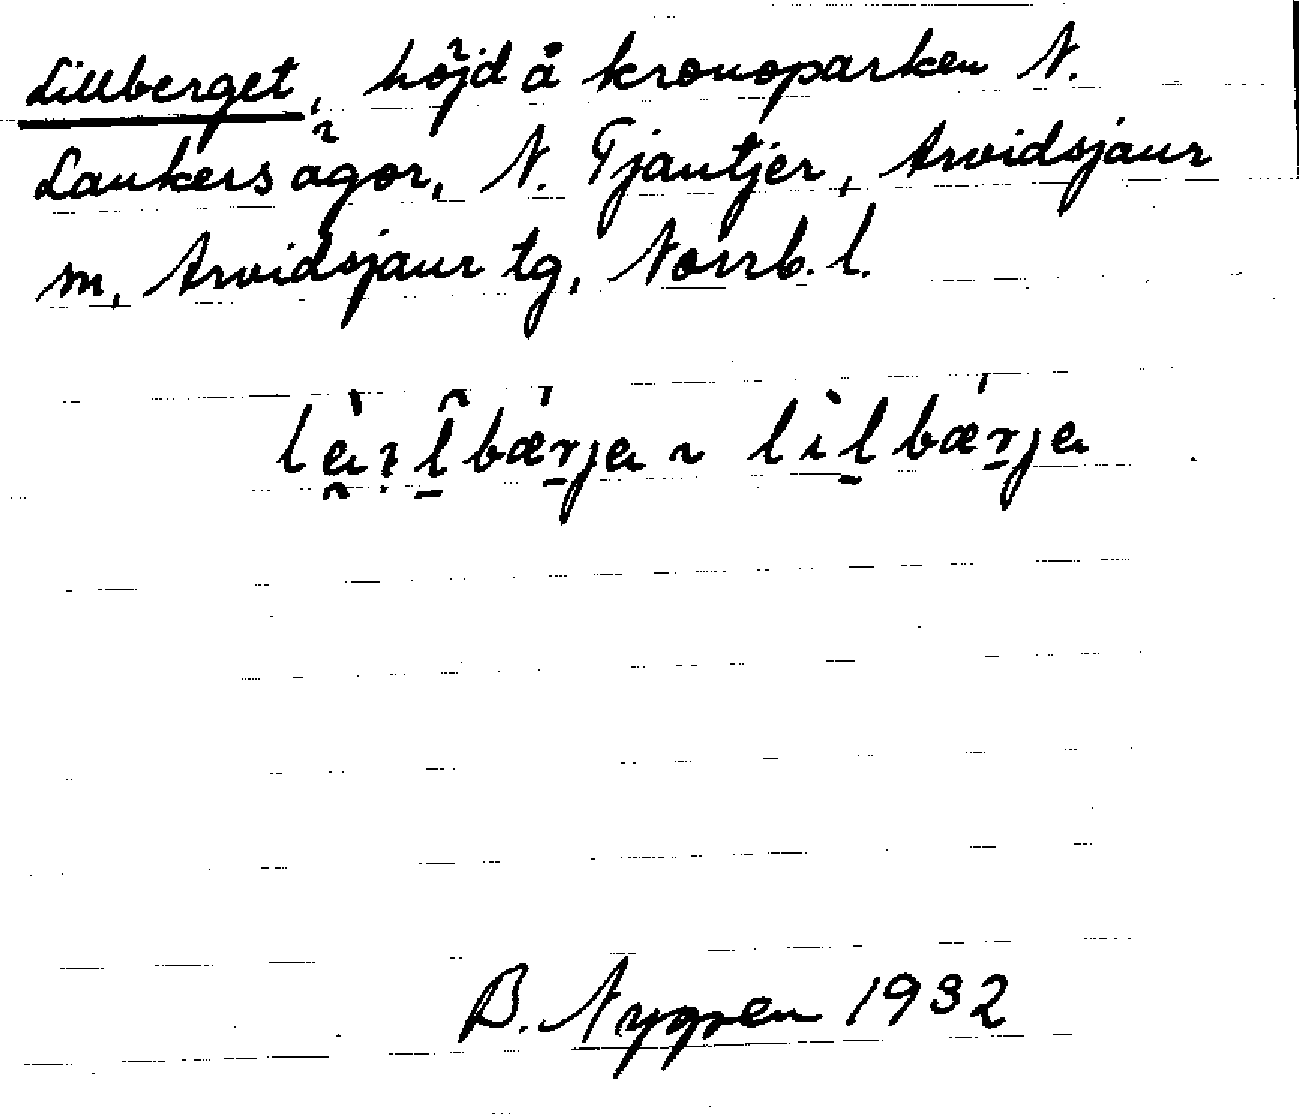 Lillberget, höjd å kronoparken N.
Laukers ägor, N. Tjautjer, Arvidsjaur
m, Arvidsjaur tg, Norrb. l.
lilbærja
B. Nygren 1932